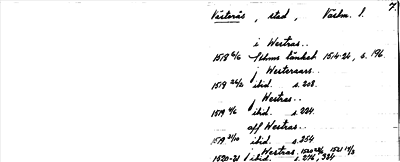 7.
Västerås, stad, Västm. l.
i Westras..
1518 6/6 Sthms tänkeb 1514-26, s. 196.
j Westeraars..
1519 26/2 ibid. s. 208.
j Westras..
1519 4/6 ibid. s. 224.
aff Westras..
1519 21/10 ibid. s. 254
Westras. 1520 23/6, 1521 14/3
1520-21 ibid. s. 276, 324